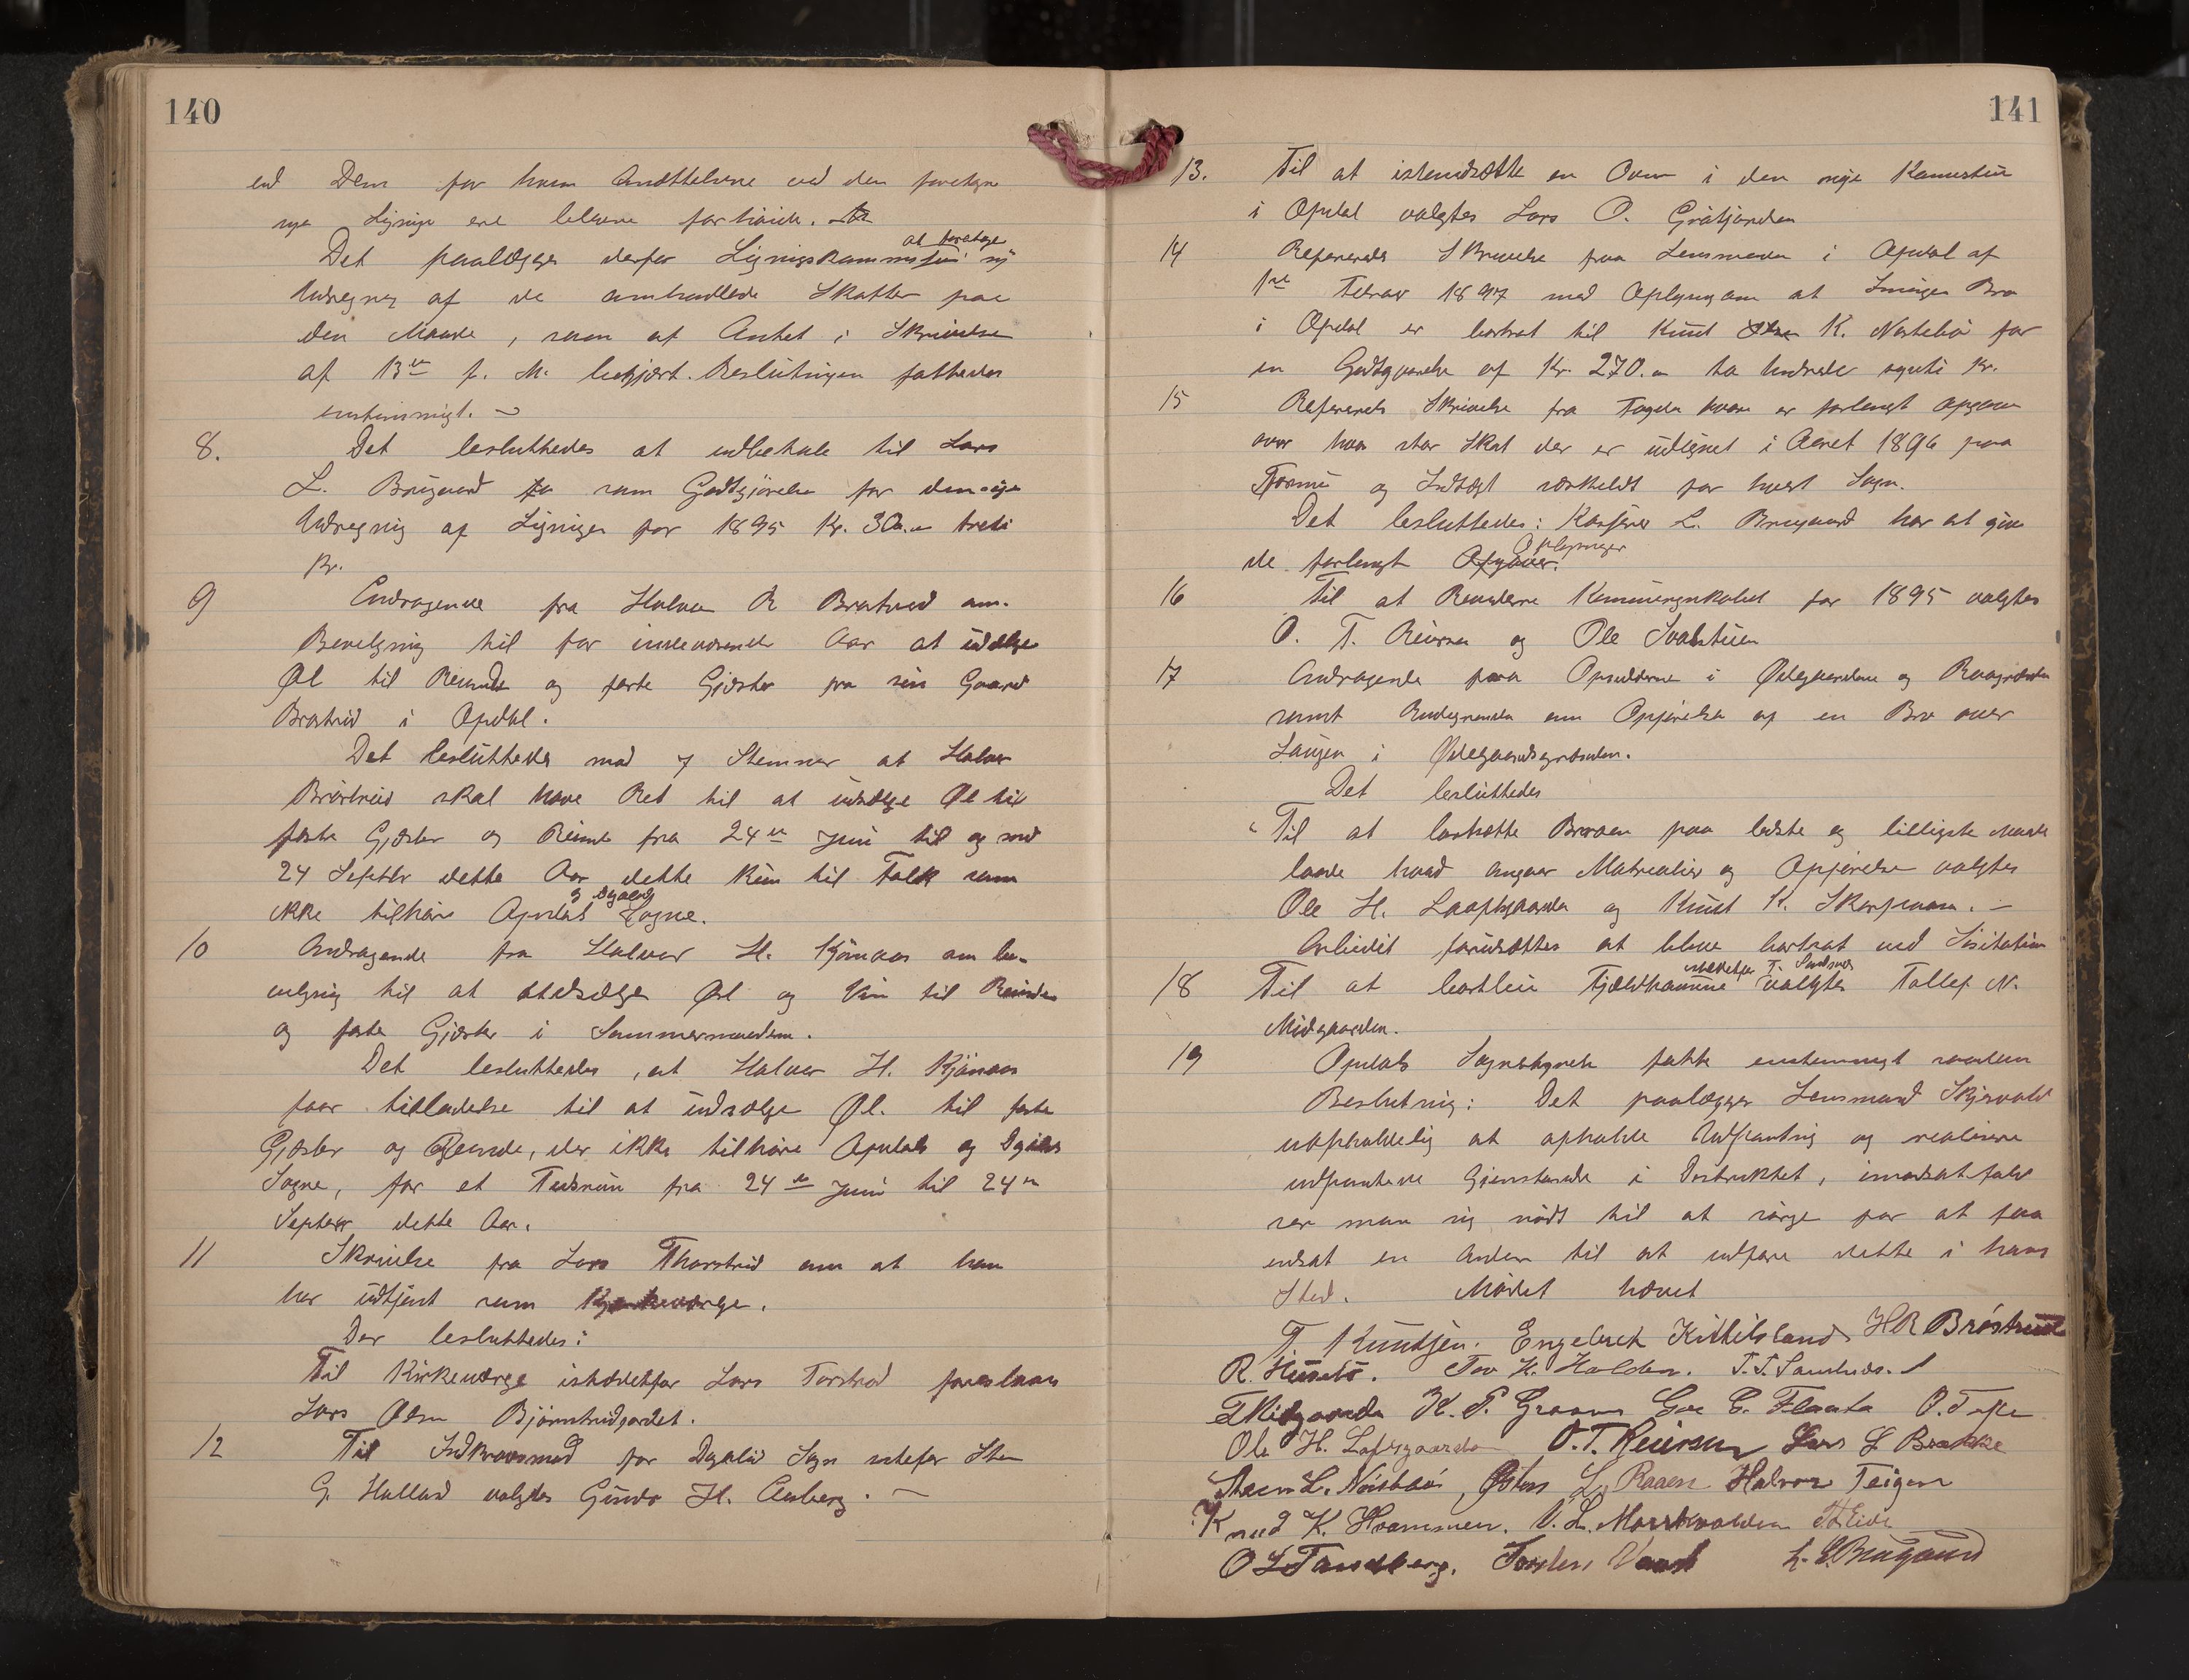 140
end Dem for hvem Ansættelserne ved den foretagne
nye Ligning ere blevne forhøiede.
Det paalægges derfor Ligningskommissionen at foretage ny
Udregning af de omhandlede Skatter paa
den Maade, som af Amtet i Skrivelse
af 13de f. M. begjært. Beslutningen fattedes
enstemmigt. –
8. Det besluttedes at udbetale til Lars
L. Brügaard som Godtgjørelse for den nye
Udregning af Ligningen for 1895 Kr. 30.00 treti
Kr.
9 Andragende fra Halvor R Brøstrud om
Bevilgning til for indeværende Aar at udsælge
Øl til Reisende og faste Gjæster fra sin Gaard
Brøstrud i Opdal.
Det besluttedes mod 7 Stemmer at Halvor
Brøstrud skal have Ret til at udsælge Øl til
faste Gjæster og Reisende fra 24de Juni til og med
24 Septbr dette Aar dette kun til Folk som
ikke tilhøre Opdals og Dagalis Sogne.
10 Andragende fra Halvor H. Kjønaas om be-
vilgning til at udsælge Øl og Vin til Reisende
og faste Gjæster i Sommermaanederne.
Det besluttedes, at Halvor H. Kjønaas
faar tilladelse til at udsælge Øl til faste
Gjæster og Reisende, der ikke tilhøre Opdals og Dagalis
Sogne, for et Tidsrum fra 24de Juni til 24de
Septbr dette Aar.
11 Skrivelse fra Lars Thorstrud om at han
har udtjent som Kirkeværge.
Der besluttedes:
Til Kirkeværge istedetfor Lars Torstrud foreslaaes
Lars Olsen Bjørnstrudjordet.
12 Til Indkræver for Dagalid Sogn istefor Sten
G. Halland valgtes Gunder H. Aasberg. –
141
13. Til at istandsætte en Ovn i den nye Kammerstue
i Opdal valgtes Lars O. Gråtjorden
14 Refereredes Skrivelse fra Lensmanden i Opdal af
1ste Februar 1897 med Oplysning om at Imingen Bro
i Opdal er bortsat til Knut K. Nørstebø for
en Godtgjørelse af Kr. 270.00 to hundrede sytti Kr.
15 Refereredes Skrivelse fra Fogden hvori er forlangt opgave
over hvor stor Skat der er udlignet i Aaret 1896 paa
Formue og Indtægt særskildt for hvert Sogn.
Det besluttedes: Kasserer L. Brugaard har at give
de forlangte Opgaver. Oplysninger
16 Til at Revidere Kommuneregnskabet for 1895 valgtes
O. T. Reiersen og Ole Svalestuen
17 Andragende fra Opsidderne i Ødegaardene og Raagrænden
samt om Opførelse af en Bro over
Laugen i Ødegaardsgrænden.
Det besluttedes
"Til at bortsætte Broen paa bedste og billigste Maade
baade hvad angaar Materialier og Opførelse valgtes
Ole H. Loftsgaarden og Knut K. Skarpaas. –
Arbeidet forudsættes at blive bortsat ved Lisitation
18 Til at bortleie Fjeldhavnene istedetfor T. Sandnes valgtes Tollef N.
Midgaarden.
19 Opdals Sognestyrelse fatte enstemmigt saadan
Beslutning: Det paalægges Lensmand Skjervold
uopholdelig at opholde Udpantning og realisere
udpantede Gjenstande i Distriktet, i modsat fald
ser man sig nødt til at sørge for at faa
indsat en Anden til at udføre dette i hans
Sted. Mødet hævet
T. Knudsen. Engebreth Kittilsland HR Brøstrud
R. Huusebø. Tov K. Halden. T. T. Sandnes.
T Midgaarden K. P. Graanes C. Flaata O. Tufte
Ole H. Loftsgaarden O. T. Reiersen Lars L Brække
Steen L. Nørstebø, Østen L Raaen Halvor Teigen
Knud K. Hvammen. O. L. Mørkvolden T Eide
O L Tandberg, Torsten Vaarl L. L. Brugaard